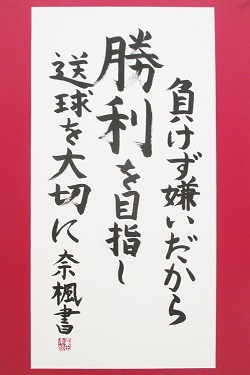 負けず嫌いだから
勝利を目指し
送球を大切に
奈楓書